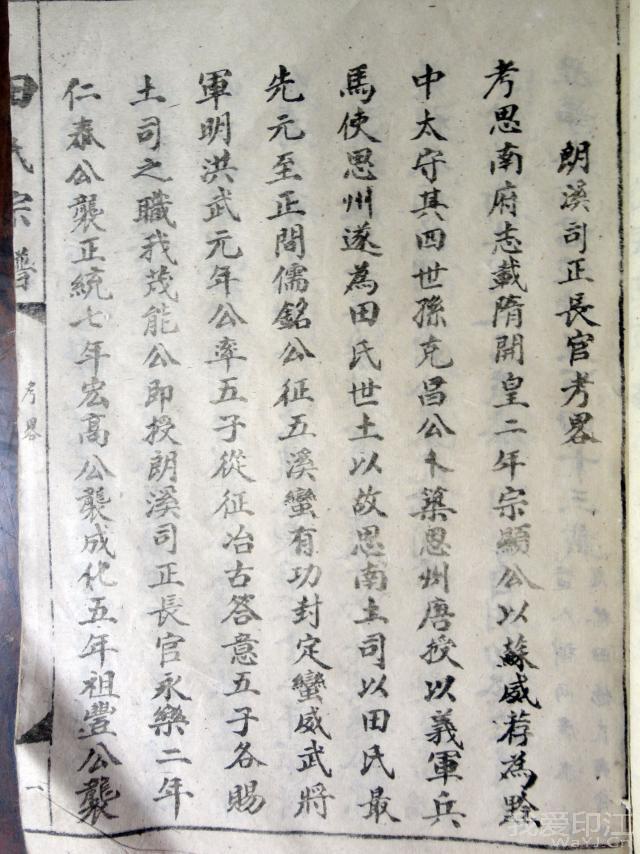 朗溪司正長官考畧
考思南府志載隋開皇二年宗顯公以蘇威荐為黔
中太守其四世孫克昌公卜築思州唐授以義軍兵
馬使思州遂為田氏世土以故思南土司以田氏最
先元至正間儒銘公征五溪蠻有功封定蠻威武將
軍明洪武元年公率五子從征冶古答意五子各賜
土司之職我茂能公即授朗溪司正長官永樂二年
仁泰公襲正統七年宏高公襲成化五年祖豐公襲
田氏宗譜
考畧
一
我爱印江
WaYJ.Cn